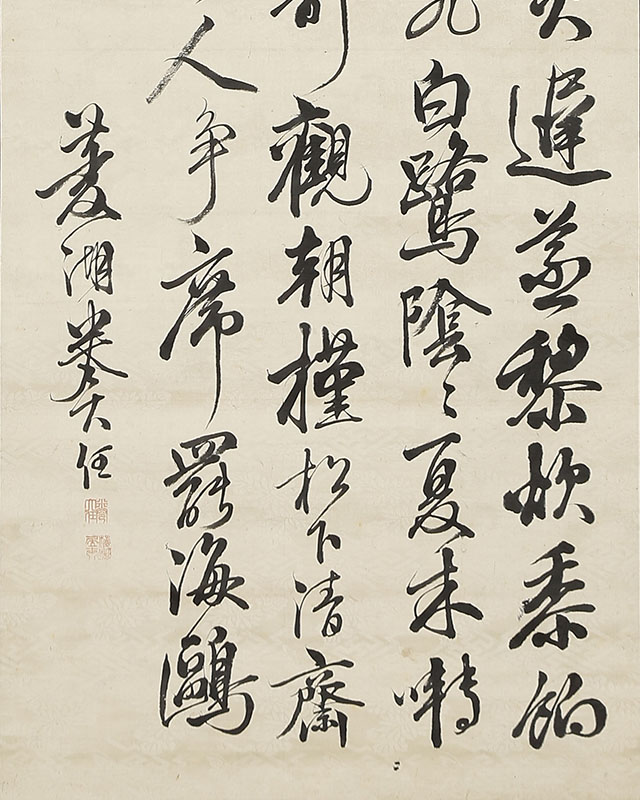 遲蒸黎炊黍餉
白鷺陰〻夏木囀
觀朝槿松下清齋
人争席罷海鷗
菱湖卷大任